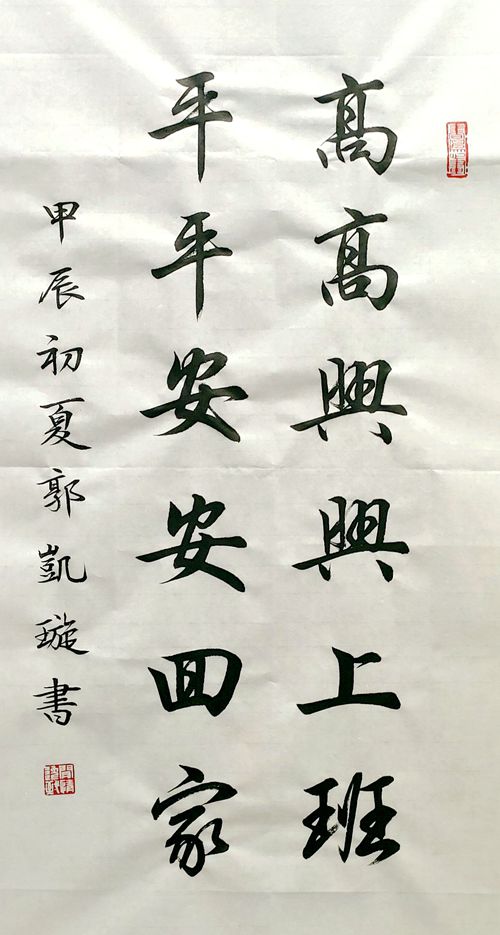 髙髙興興上班
平平安安回家
甲辰初夏郭凱璇書